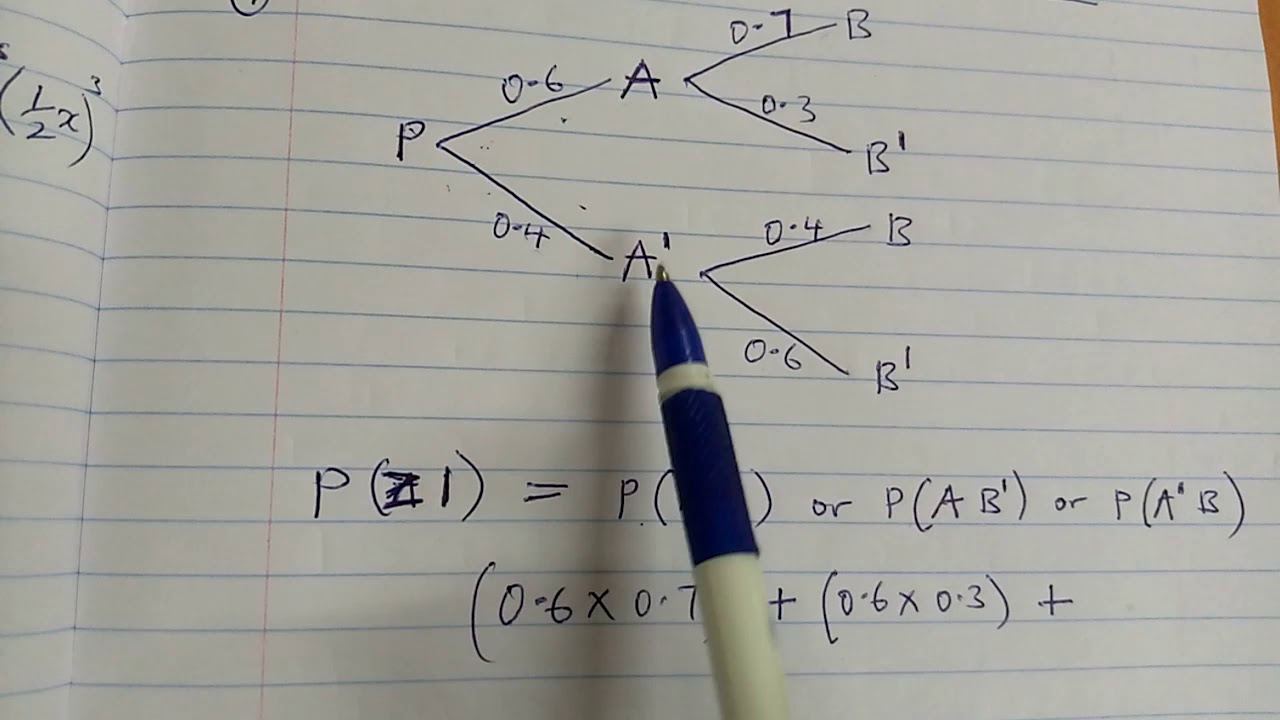 0.7 B
0.6 A
0.3
(1/2 x)^3
P
B'
0.4 A'
0.4 B
0.6
B'
P ( 1) = P.( ) or P(A B') or P(A' B)
(0.6 x 0.7 + (0.6 x 0.3) +